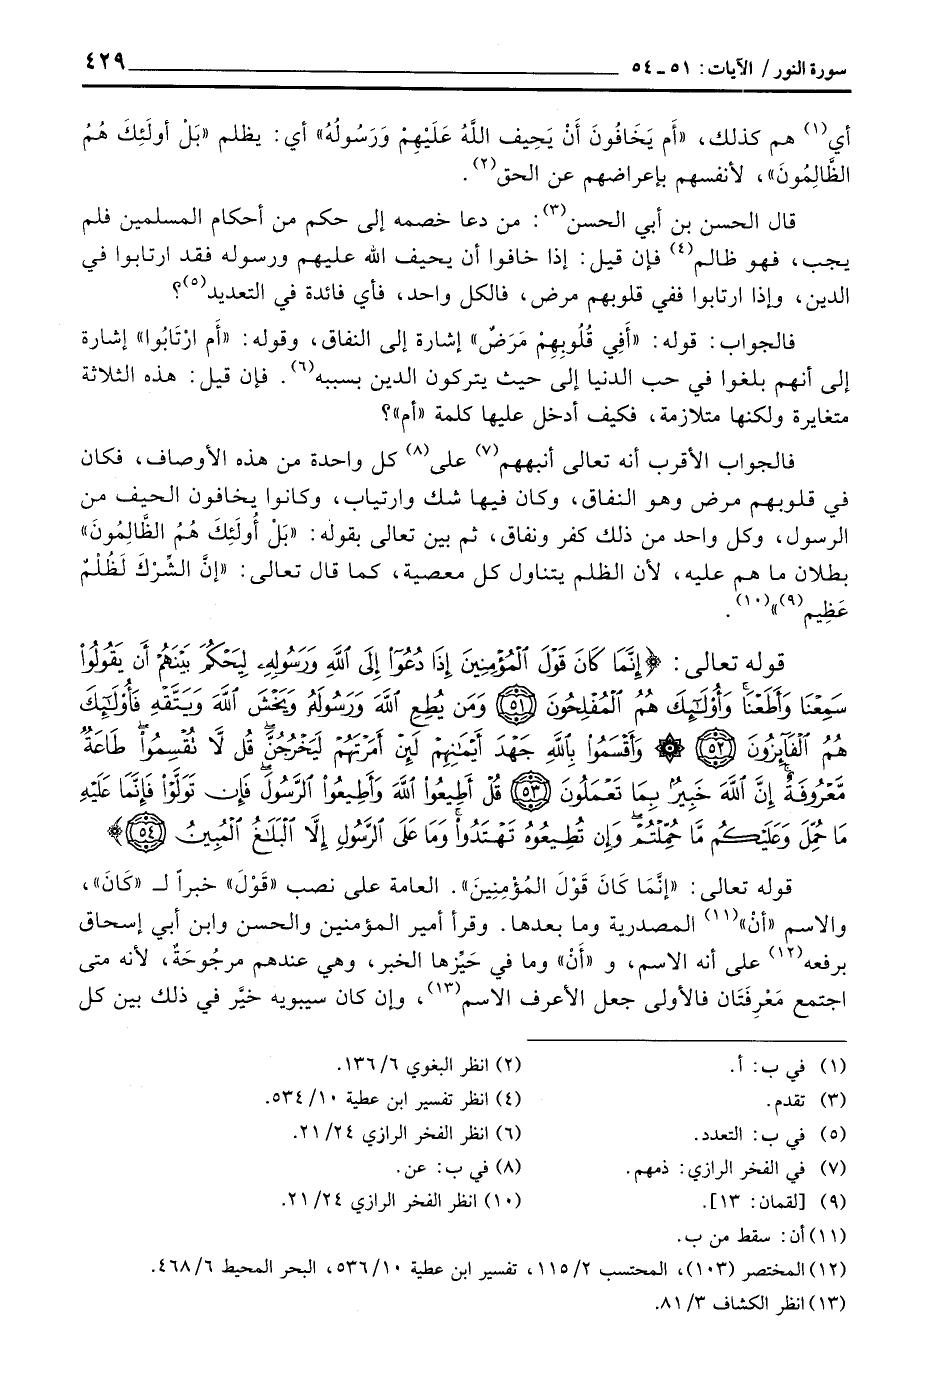 سورة النور/ الآيات: ٥١ـ٥٤ ٤٢٩
أي(١) هم كذلك، «أَم يَخَافُونَ أَنْ يَحِيف اللَّهُ عَلَيْهِمْ وَرَسُولُهُ» أي: يظلم «بَلْ أولَئِكَ هُمُ
الظَّالِمُونَ»، لأنفسهم بإعراضهم عن الحق(٢).
قال الحسن بن أبي الحسن(٣): من دعا خصمه إلى حكم من أحكام المسلمين فلم
يجب، فهو ظالم(٤) فإن قيل: إذا خافوا أن يحيف الله عليهم ورسوله فقد ارتابوا في
الدين، وإذا ارتابوا ففي قلوبهم مرض، فالكل واحد، فأي فائدة في التعديد(٥)؟
فالجواب: قوله: «أَفِي قُلُوبِهِمْ مَرَضٌ» إشارة إلى النفاق، وقوله: «أَم ارْتَابُوا» إشارة
إلى أنهم بلغوا في حب الدنيا إلى حيث يتركون الدين بسببه(٦). فإن قيل: هذه الثلاثة
متغايرة ولكنها متلازمة، فكيف أدخل عليها كلمة «أم»؟
فالجواب الأقرب أنه تعالى أنبههم(٧) على(٨) كل واحدة من هذه الأوصاف، فكان
في قلوبهم مرض وهو النفاق، وكان فيها شك وارتياب، وكانوا يخافون الحيف من
الرسول، وكل واحد من ذلك كفر ونفاق، ثم بين تعالى بقوله: «بَلْ أُولَئِكَ هُمُ الظَّالِمُونَ»
بطلان ما هم عليه، لأن الظلم يتناول كل معصية، كما قال تعالى: «إنَّ الشِّرْكَ لَظُلْمٌ
عَظِيم(٩)»(١٠).
قوله تعالى: ﴿إِنَّمَا كَانَ قَوْلَ الْمُؤْمِنِينَ إِذَا دُعُوٓا۟ إِلَى اللَّهِ وَرَسُولِهِۦ لِيَحْكُمَ بَيْنَهُمْ أَن يَقُولُوا۟
سَمِعْنَا وَأَطَعْنَاۚ وَأُو۟لَٰٓئِكَ هُمُ الْمُفْلِحُونَ ٥١ وَمَن يُطِعِ اللَّهَ وَرَسُولَهُۥ وَيَخْشَ اللَّهَ وَيَتَّقْهِ فَأُو۟لَٰٓئِكَ
هُمُ الْفَآئِزُونَ ٥٢ ۞ وَأَقْسَمُوا۟ بِاللَّهِ جَهْدَ أَيْمَٰنِهِمْ لَئِنْ أَمَرْتَهُمْ لَيَخْرُجُنَّۖ قُل لَّا تُقْسِمُوا۟ۖ طَاعَةٌ
مَّعْرُوفَةٌۚ إِنَّ اللَّهَ خَبِيرٌۢ بِمَا تَعْمَلُونَ ٥٣ قُلْ أَطِيعُوا۟ اللَّهَ وَأَطِيعُوا۟ الرَّسُولَۖ فَإِن تَوَلَّوْا۟ فَإِنَّمَا عَلَيْهِ
مَا حُمِّلَ وَعَلَيْكُم مَّا حُمِّلْتُمْۖ وَإِن تُطِيعُوهُ تَهْتَدُوا۟ۚ وَمَا عَلَى الرَّسُولِ إِلَّا الْبَلَٰغُ الْمُبِينُ ٥٤﴾
قوله تعالى: «إنَّمَا كَانَ قَوْلَ المُؤْمِنِينَ». العامة على نصب «قَوْلَ» خبراً لـ «كَانَ»،
والاسم «أَنْ»(١١) المصدرية وما بعدها. وقرأ أمير المؤمنين والحسن وابن أبي إسحاق
برفعه(١٢) على أنه الاسم، و «أَنْ» وما في حَيِّزها الخبر، وهي عندهم مرجُوحَةٌ، لأنه متى
اجتمع مَعْرِفَتَان فالأولى جعل الأعرف الاسم(١٣)، وإن كان سيبويه خيَّر في ذلك بين كل
(١) في ب: أ. (٢) انظر البغوي ١٣٦/٦.
(٣) تقدم. (٤) انظر تفسير ابن عطية ٥٣٤/١٠.
(٥) في ب: التعدد. (٦) انظر الفخر الرازي ٢١/٢٤.
(٧) في الفخر الرازي: ذمهم. (٨) في ب: عن.
(٩) [لقمان: ١٣]. (١٠) انظر الفخر الرازي ٢١/٢٤.
(١١) أن: سقط من ب.
(١٢) المختصر (١٠٣)، المحتسب ١١٥/٢، تفسير ابن عطية ٥٣٦/١٠، البحر المحيط ٤٦٨/٦.
(١٣) انظر الكشاف ٨١/٣.